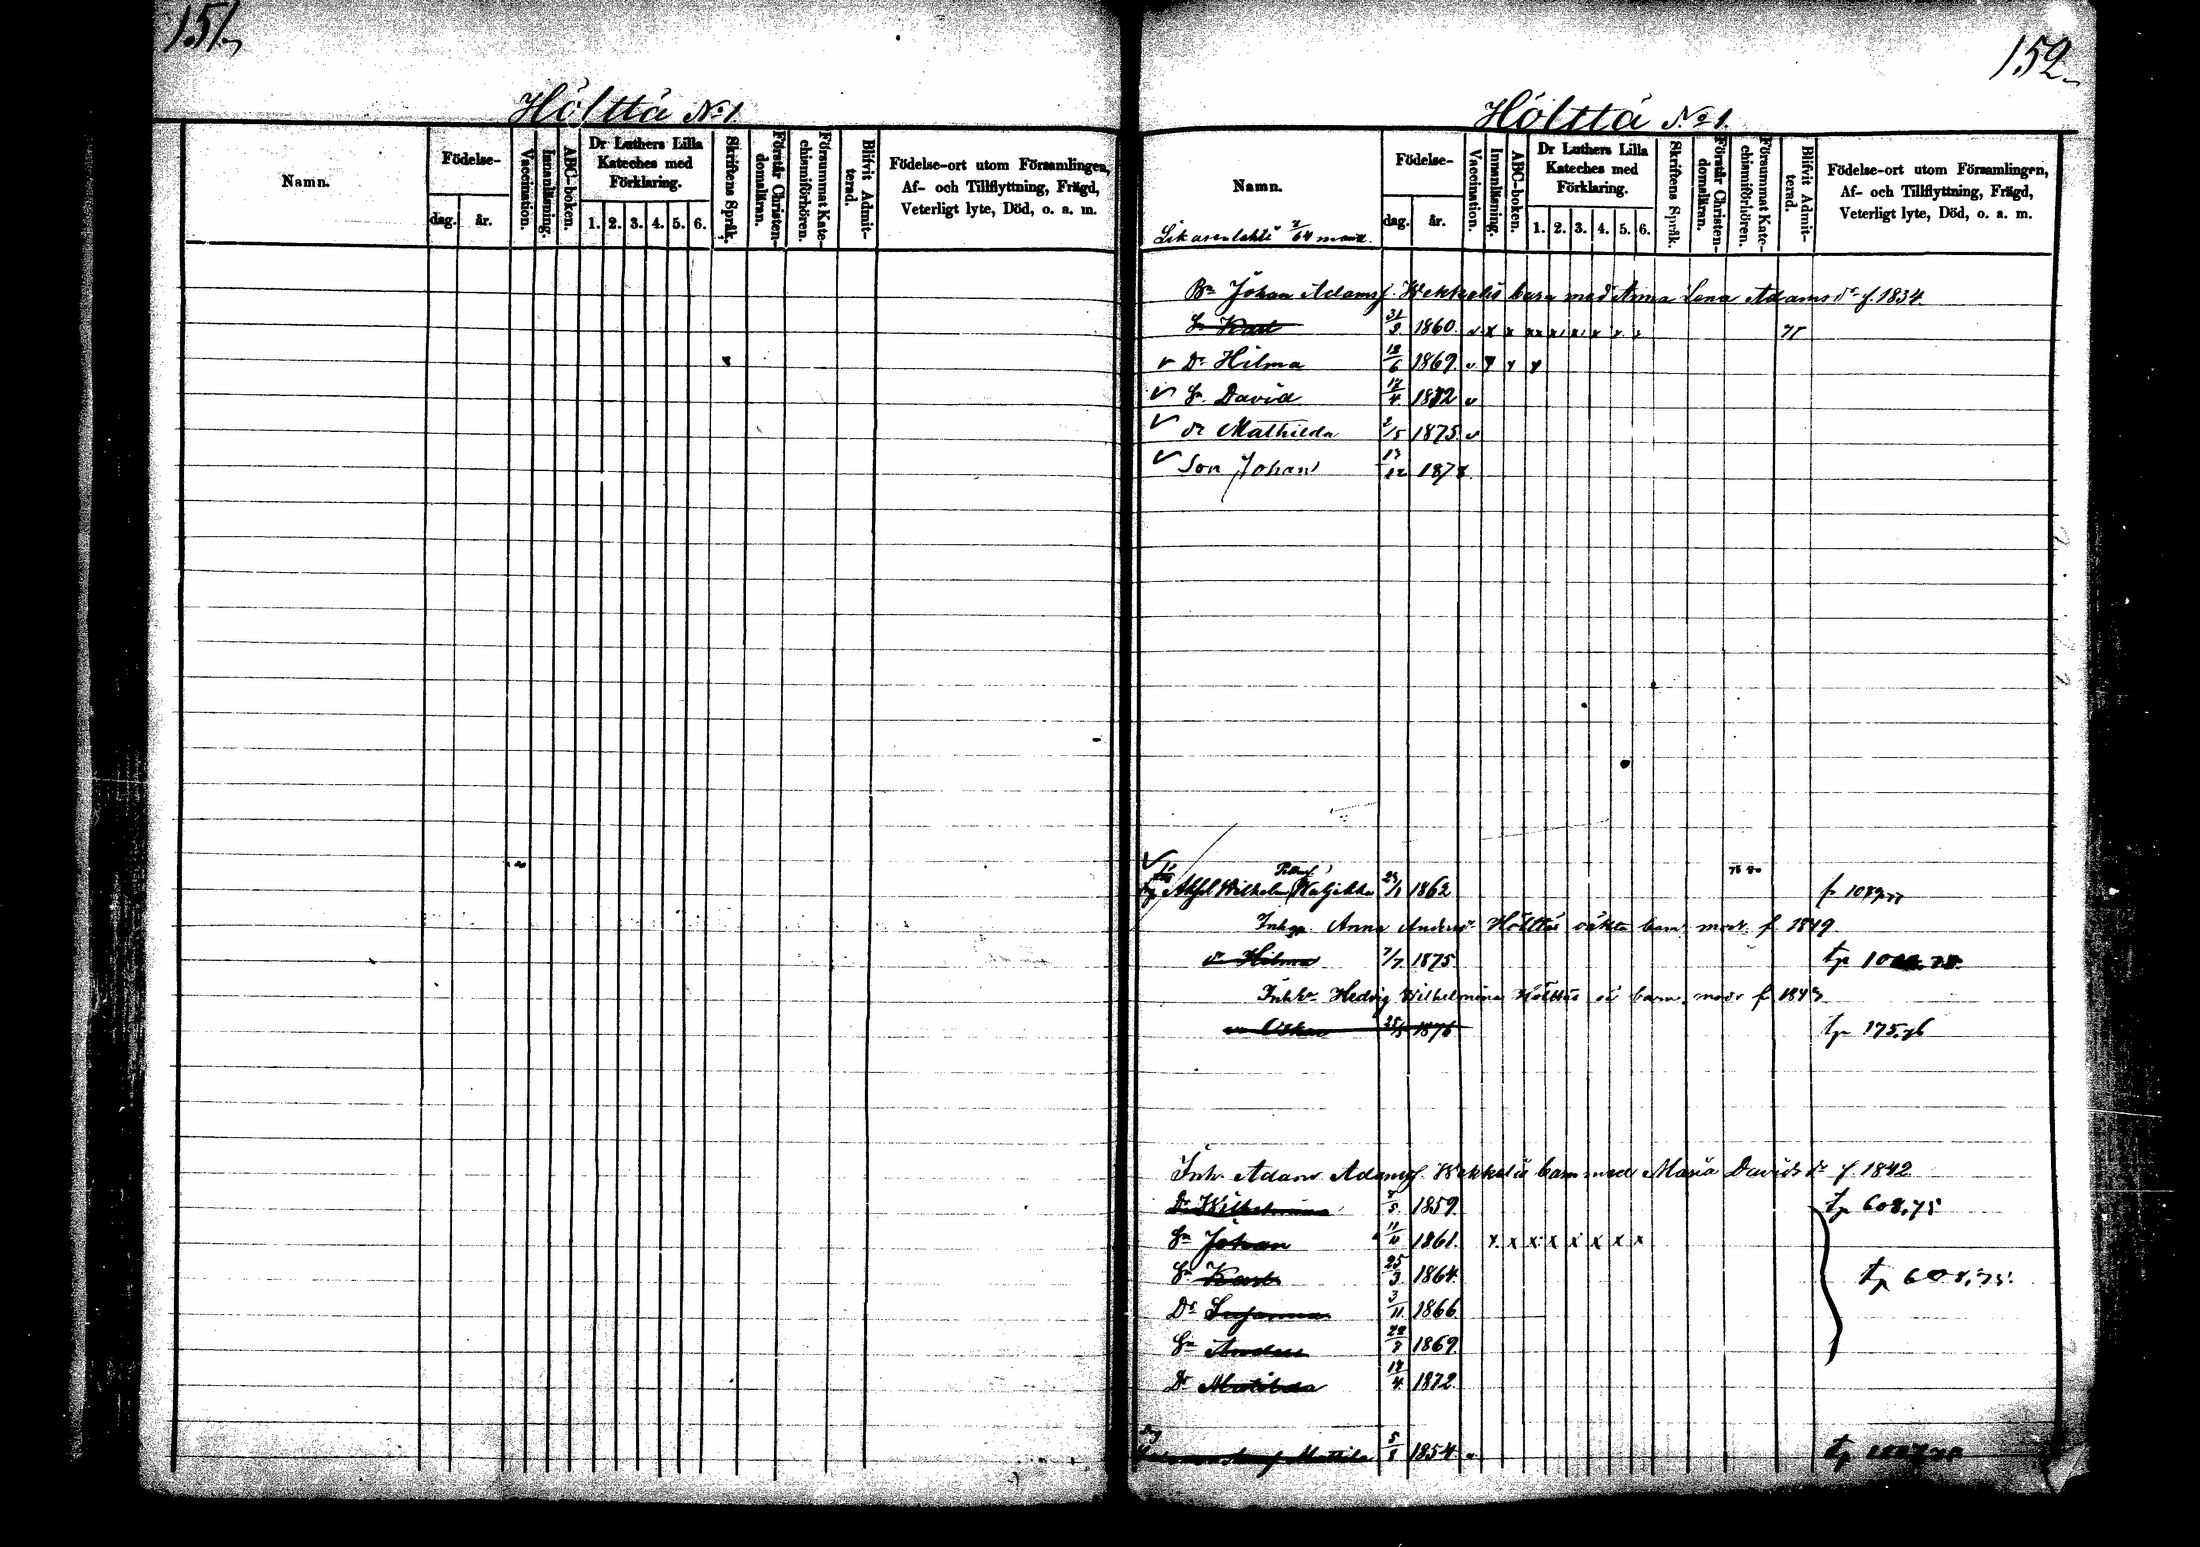 151.
Höltta No 1
Namn.
Födelse-
dag.
år.
Vaccination.
Innanläsning.
ABC-boken.
Dr Luthers Lilla
Kateches med
Förklaring.
1. 2. 3. 4. 5. 6.
Skriftens Språk.
Förstår Christen-
domsläran.
Försummat Kate-
chismiförhören.
Blifvit Admit-
terad.
Födelse-ort utom Församlingen,
Af- och Tillflyttning, Frägd,
Veterligt lyte, Död, o. a. m.
152.
Höltta No 1.
Namn.
Födelse-
dag.
år.
Vaccination.
Innanläsning.
ABC-boken.
Dr Luthers Lilla
Kateches med
Förklaring.
1. 2. 3. 4. 5. 6.
Skriftens Språk.
Förstår Christen-
domsläran.
Försummat Kate-
chismiförhören.
Blifvit Admit-
terad.
Födelse-ort utom Församlingen,
Af- och Tillflyttning, Frägd,
Veterligt lyte, Död, o. a. m.
Johan Adamsf. Wekkelis barn med Anna Lena Adamsdr f. 1834
Sn Karl 31/8 1860 v x x x x x x x x
v Dr Hilma 18/6 1869 v
v Sn David 17/4 1872 v
v Dr Mathilda 2/5 1875 v
v Son Johan 13/12 1878
Wilhelm 1862
Anna Höltta barn f 1849
dr Hilma 7/7 1875 tp
Hedvig Wilhelmina barn f 1843
1876 tp 175.76
Inh. Adam Adamsf. Wekkelis barn med Maria Davidsdr f. 1842
Dr Wilhelmina 1859 tp 608,75
Sn Johan 11/11 1861 x x x x x x x x
Sn Karl 25/3 1864 tp 608,75
Dr Susanna 3/11 1866
Sn Anders 1869
Dr Matilda 18/4 1872
Mattila 5/8 1854 tp